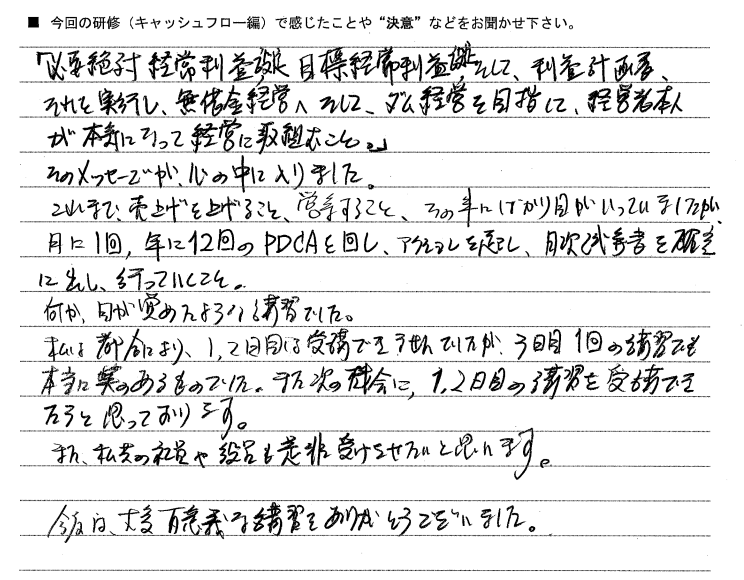 ■ 今回の研修（キャッシュフロー編）で感じたことや“決意”などをお聞かせ下さい。
「必要絶対経常利益額、目標経常利益額、そして、利益計画書、
それを実行し、無借金経営へそして、ダム経営を目指して、経営者本人
が本気になって経営に取組むこと。」
そのメッセージが、心の中に入りました。
これまで、売上げを上げること、営業すること、その事にばかり目がいっていましたが、
月に1回、年に12回のPDCAを回し、アクションを起こし、月次決算書を確実
に出し、行っていくこと。
何か、目が覚めたような講習でした。
私は都合により、1,2日目は受講できませんでしたが、3日目1回の講習でも
本当に実のあるものでした。また次の機会に、1,2日目の講習を受講でき
たらと思っております。
また、私共の社員や役員も是非受けさせたいと思います。
今回は、大変有意義な講習をありがとうございました。